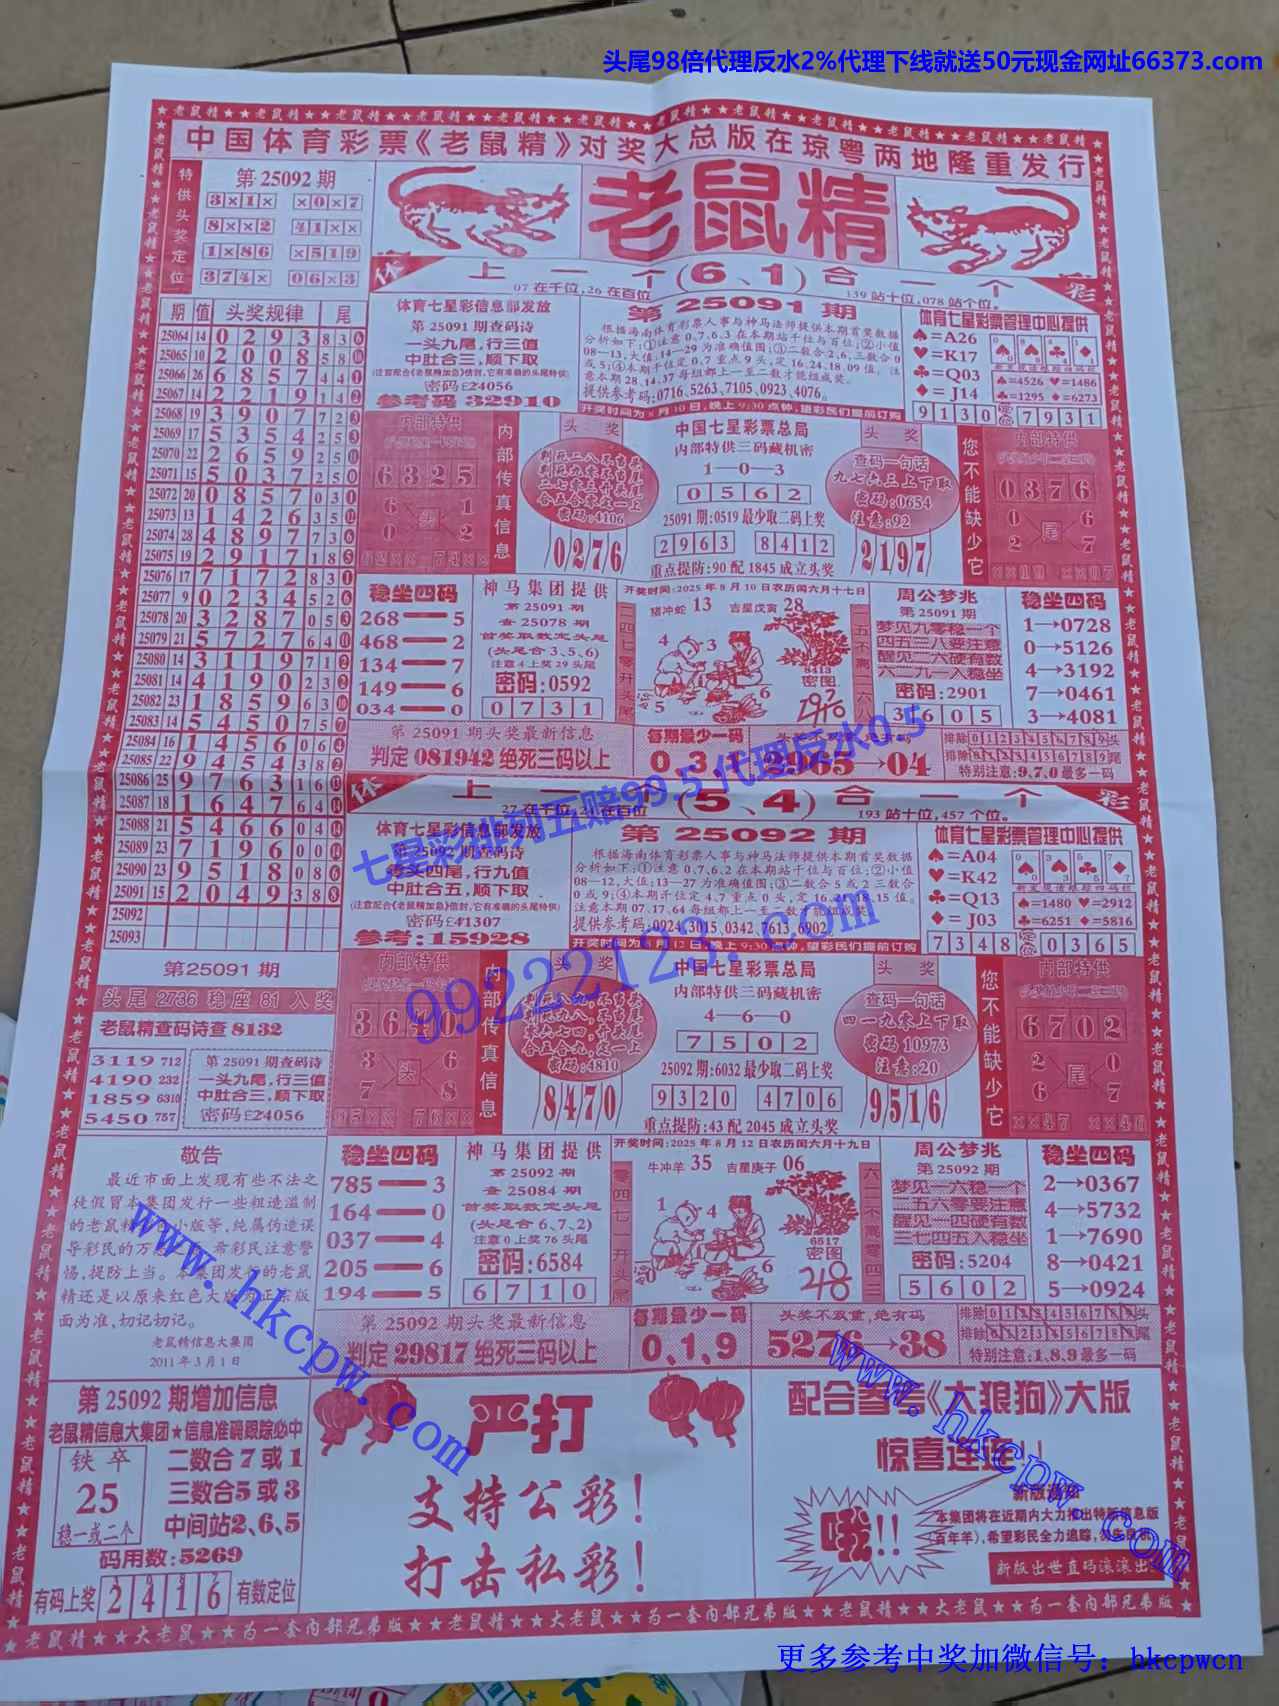 头尾98倍代理反水2%代理下线就送50元现金网址66373.com
中国体育彩票《老鼠精》对奖大总版在琼粤两地隆重发行
特供头奖定位
第25092期
3×1× ×0×7
8××2 41××
1×86 ×519
374× 06×3
老鼠精
体 上一个(6、1)合一个 彩
07在千位,26在百位
139站十位,078站个位。
期 值 头奖规律 尾
25064 14 0293 83
25065 10 2008 58
25066 26 6857 44
25067 14 2219 14
25068 19 3907 72
25069 17 5354 25
25070 22 2659 25
25071 15 5037 25
25072 20 0857 03
25073 13 1426 35
25074 28 4897 73
25075 19 2917 18
25076 17 7172 83
25077 9 0234 52
25078 20 3287 05
25079 21 5727 64
25080 14 3119 71
25081 14 4190 23
25082 23 1859 63
25083 14 5450 75
25084 16 1456 06
25085 22 9454 38
25086 25 9763 16
25087 18 1647 64
25088 21 5466 04
25089 23 7196 00
25090 23 9518 08
25091 15 2049 38
25092
25093
体育七星彩信息部发放
第25091期查码诗
一头九尾,行三值
中肚合三,顺下取
密码£24056
参考码 32910
第25091期
根据海南体育彩票人事与神马法师提供本期首奖数据
分析如下:①注意0,7,6,3在本期站千位与百位;②小值
08—13,大值,14—29为准确值围;③二数合2,6,三数合0
或5;④本期千位定0,7重点9头,定16,24,18,09值。注
意本期28,14,37每组都上一至二数才能组成奖。
提供参考码:0716,5263,7105,0923,4076。
开奖时间为8月10日,晚上9:30点钟,望彩民们提前订购
体育七星彩票管理中心提供
♠=A26
♥=K17
♣=Q03
♦=J14
♠=4526 ♥=1486
♣=1295 ♦=6273
9130 7931
内部特供
6325
6 1
头
0 2
内部传真信息
头奖
密码:4106
0276
中国七星彩票总局
内部特供三码藏机密
1—0—3
0562
25091期:0519最少取二码上奖
2963 8412
重点提防:90配1845成立头奖
头奖
查码一句话
九七六三上下取
密码:0654
注意:92
2197
您不能缺少它
内部特供
0376
0 6
尾
2 7
稳坐四码
268—5
468—2
134—7
149—6
034—0
神马集团提供
第25091期
查25078期
首奖取数定头尾
(头尾合3、5、6)
注意4上奖29头尾
密码:0592
0731
开奖时间:2025年8月10日农历闰六月十七日
猪冲蛇 13 吉星戊寅 28
二四七零开头尾
8413
密图
周公梦兆
第25091期
梦见九零稳一个
四五三八要注意
醒见二六硬有数
六二九一入稳坐
密码:2901
3605
稳坐四码
1→0728
0→5126
4→3192
7→0461
3→4081
第25091期头奖最新信息
判定081942绝死三码以上
每期最少一码
0,3,1
2965→04
特别注意:9,7,0最多一码
体 上一个(5、4)合一个 彩
193站十位,457个位。
体育七星彩信息部发放
第25092期查码诗
中肚合五,顺下取
密码£41307
参考:15928
第25092期
根据海南体育彩票人事与神马法师提供本期首奖数据
分析如下:①注意0,7,6,2在本期站千位与百位;②小值
08—12,大位:13—27为准确值围;③二数合5或2三数合
0或9;④本期千位定4,7重点0头,定16,21,18,15值。
注意本期07,17,64每组都上一至二数才能组成奖
提供参考码:0924,3015,0342,7613,6902
开奖时间为8月12日,晚上9:30点钟,望彩民们提前订购
体育七星彩票管理中心提供
♠=A04
♥=K42
♣=Q13
♦=J03
♠=1480 ♥=2912
♣=6251 ♦=5816
7348 0365
第25091期
头尾2736稳座81入奖
老鼠精查码诗查8132
3119 712
4190 232
1859 6310
5450 757
第25091期查码诗
一头九尾,行三值
中肚合三,顺下取
密码£24056
内部特供
3 6
头
7 8
内部传真信息
头奖
密码:4810
8470
中国七星彩票总局
内部特供三码藏机密
4—6—0
7502
25092期:6032最少取二码上奖
9320 4706
重点提防:43配2045成立头奖
头奖
查码一句话
四一九零上下取
密码10973
注意:20
9516
您不能缺少它
内部特供
6702
2 0
尾
6 7
××47 ××40
敬告
最近市面上发现有些不法之
徒假冒本集团发行一些粗造滥制
小版等,纯属伪造误
导彩民的万 希彩民注意警
惕,提防上当。本集团发行的老鼠
精还是以原来红色大版为正宗版
面为准,切记切记。
老鼠精信息大集团
2011年3月1日
稳坐四码
785—3
164—0
037—4
205—6
194—5
神马集团提供
第25092期
查25084期
首奖取数定头尾
(头尾合6、7、2)
注意0上奖76头尾
密码:6584
6710
开奖时间:2025年8月12日农历闰六月十九日
牛冲羊 35 吉星庚子 06
零四七一开头尾
6517
密图
周公梦兆
第25092期
梦见一六稳一个
二五六零要注意
醒见一四硬有数
三七四五入稳坐
密码:5204
5602
稳坐四码
2→0367
4→5732
1→7690
8→0421
5→0924
第25092期头奖最新信息
判定29817绝死三码以上
每期最少一码
0,1,9
头奖不双重,绝有码
5276→38
特别注意:1,8,9最多一码
第25092期增加信息
老鼠精信息大集团★信息准确跟踪必中
铁卒
25
稳一或二个
二数合7或1
三数合5或3
中间站2、6、5
码用数:5269
有码上奖 2416 有数定位
严打
支持公彩!
打击私彩!
配合参考《大狼狗》大版
惊喜连连!
哦!!
本集团将在近期内大力推出特新信息版
《百年羊》,希望彩民全力追踪,
新版出世直码滚滚出
七星彩排列五赔99.5 代理反水0.5
99222123.com
www.hkcpw.com
www.hkcpw.com
★老鼠精★★大老鼠★★为一套内部兄弟版★★老鼠精★★大老鼠★★为一套内部兄弟版★
更多参考中奖加微信号：hkcpwcn